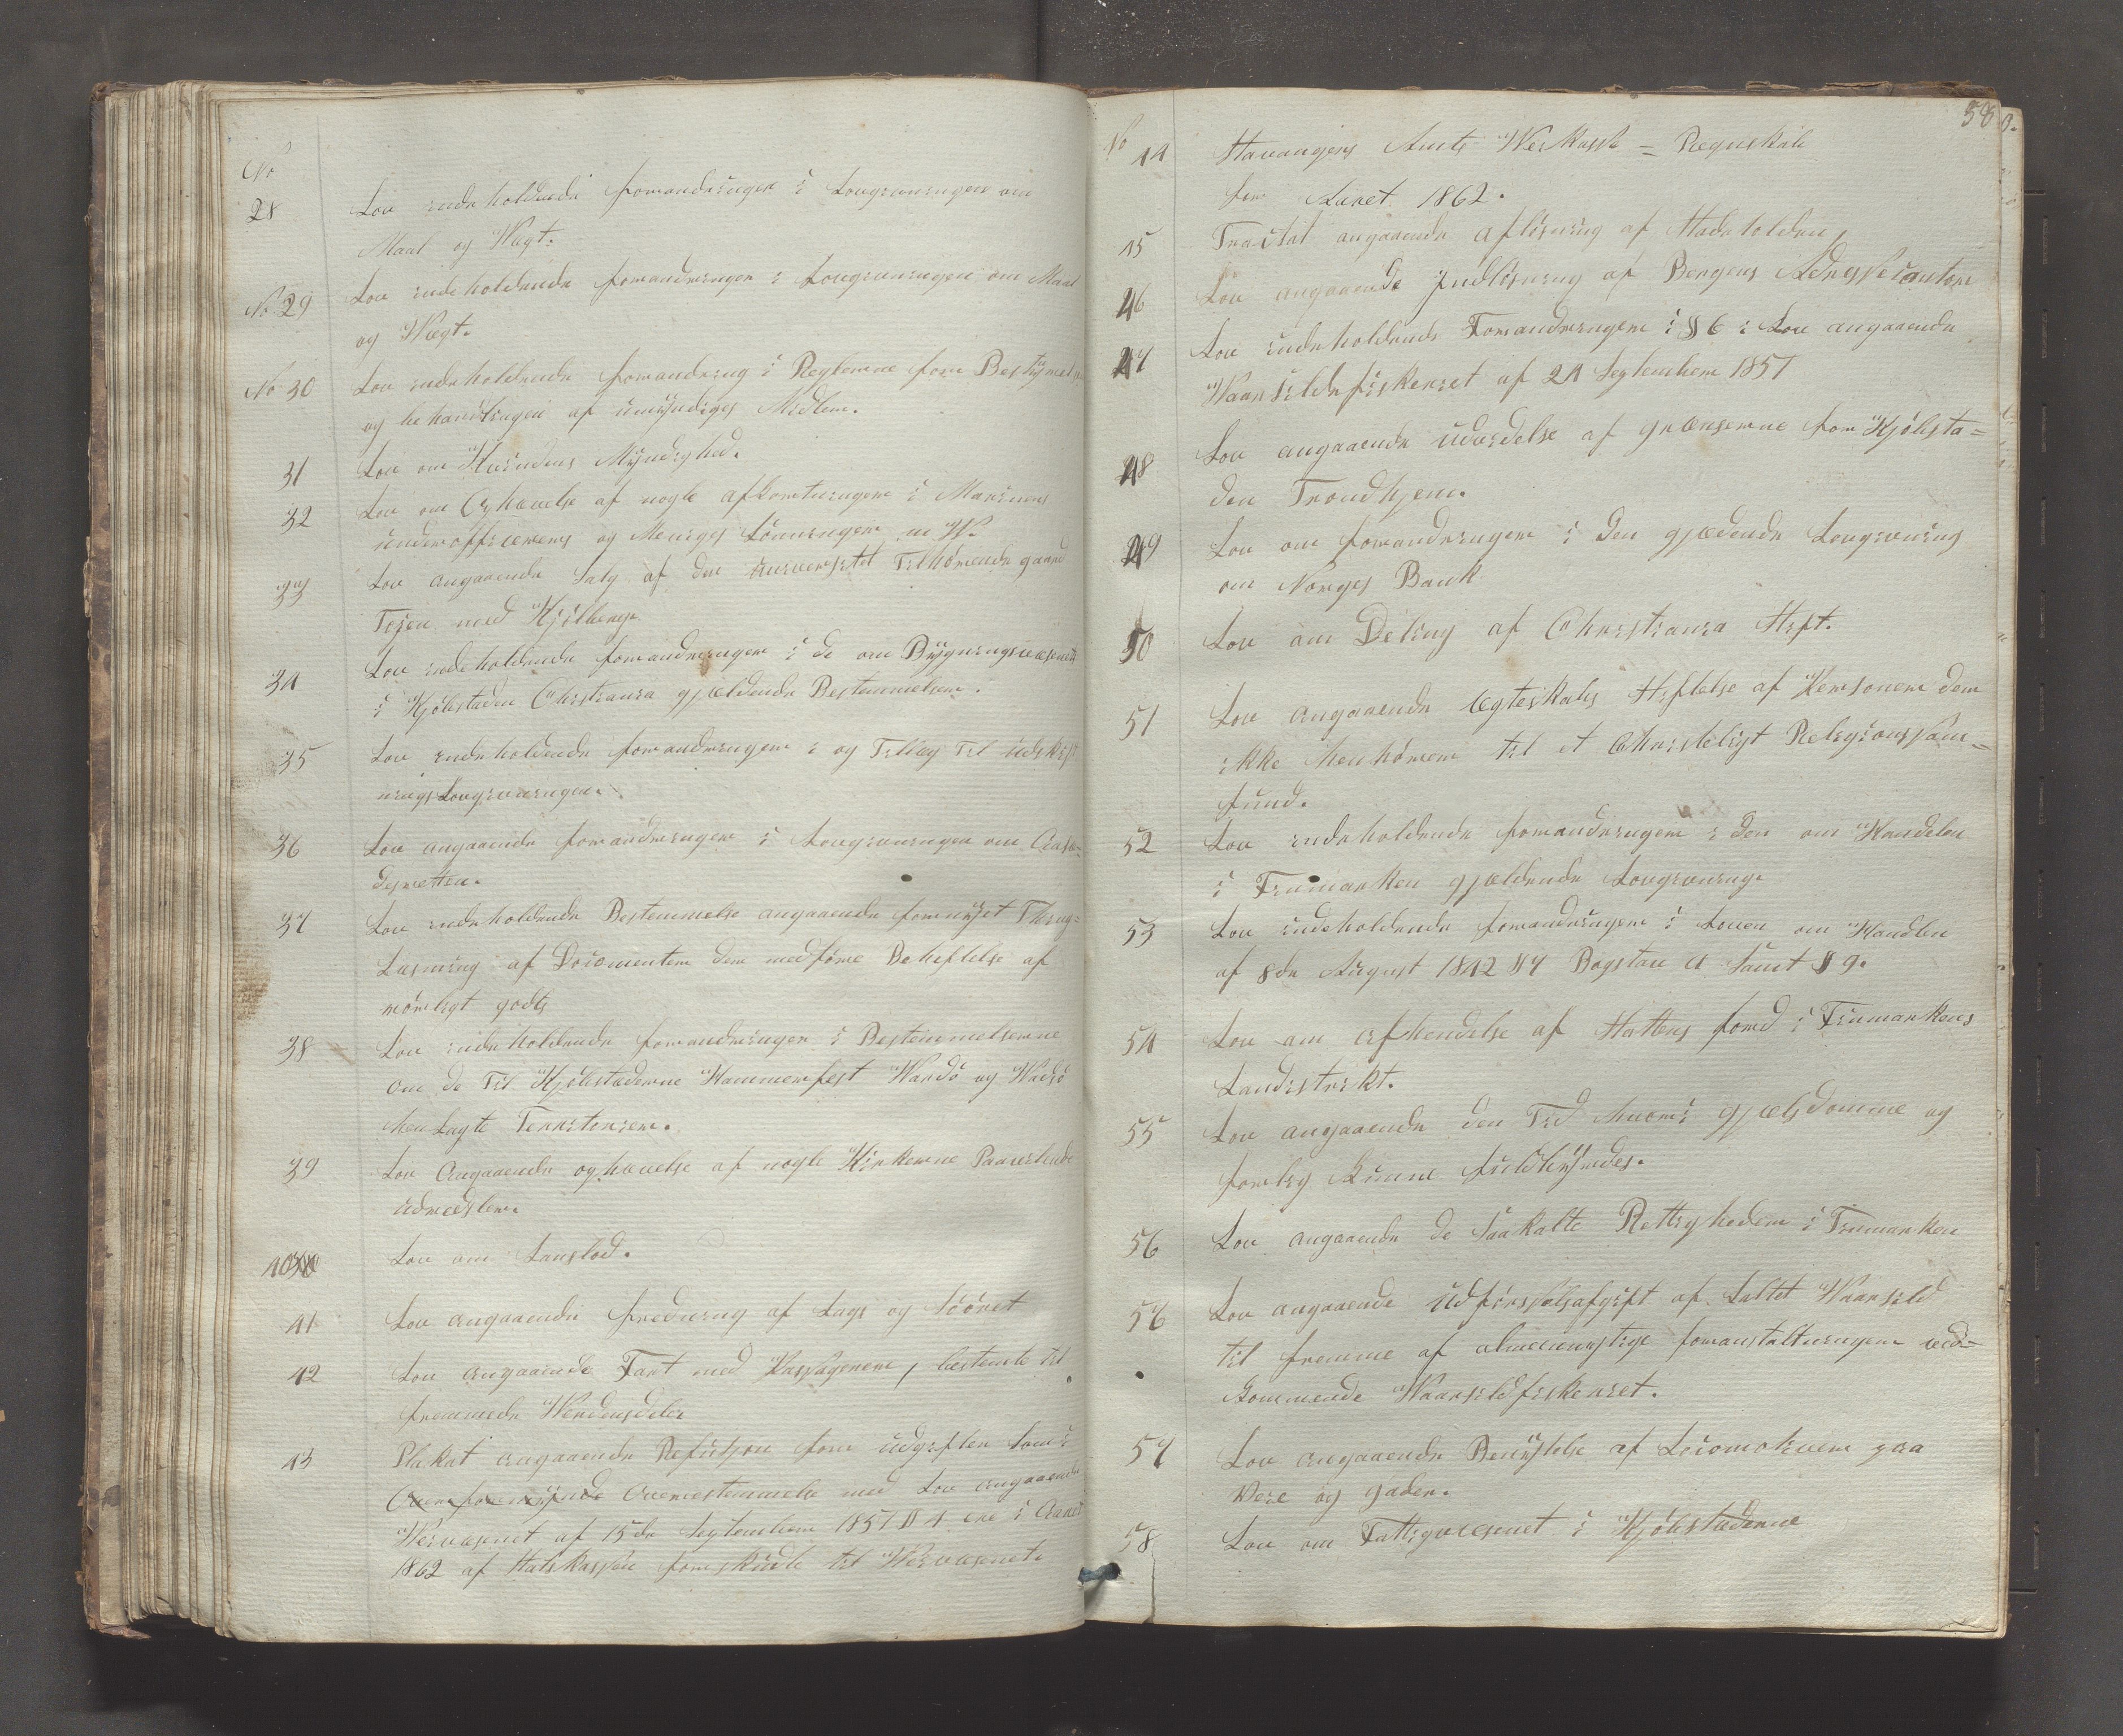 No
28 Lov indeholdende forandringer i Lovgivningen om
Maal og Vægt.
No 29 Lov indeholdende forandringer i Lovgivningen om Maal
og Vægt.
No 30 Lov indeholdende forandring i Reglerne for Bestÿrelse
og behandlingen af umÿndiges Midler.
31 Lov om Kvindens Mÿndighed.
32 Lov om Ophævelse af nogle afkortninger i Marinens
underofficerers og Meniges Lönninger m V.
33 Lov angaaende Salg af den universitet Tilhörende gaard
Töjen med Kjölberg
34 Lov indeholdende forandringer i de om Bÿgningsvæsenet
i Kjöbstaden Christiania gjældende Bestemmelser.
35 Lov indeholdende forandringer i og Tillæg til udskif
nings Lovgivningen.
36 Lov angaaende forandringer i Lovgivningen om Aasæ-
desretten.
37 Lov indeholdende Bestemmelse angaaende fornÿet Thing-
Læsning af Documenter der medföre Beheftelse af
rörligt godts
38 Lov indeholdende forandringer i Bestemmelserne
om de Til Kjöbstæderne Hammerfest Vardö og Vadsö
hen Lagte Territorier.
39 Lov Angaaende ophævelse af nogle Kirkerne Paaveilende
udredsler.
40 Lov om Lanslod.
41 Lov angaaende fredning af Lags og Söörret
42 Lov angaaende Fart med Passagerere, bestemte til
fremmede Verdensdele
43 Plakat angaaende Refusjon for udgiften som i
Overestemmelse med Lov angaaende
Veivæsenet af 15de September 1851 § 4 ere i Aaret
1862 af Statskassen forskudt til Veivæsenet
58
No 44 Stavangers Amts Veikasse = Regnskab
for Aaret 1862.
45 Tractat angaaende aflösning af Stadetolden,
46 Lov angaaende Indlösning af Bergens Adressecontor
47 Lov indeholdende Forandringer i § 6 i Lov angaaende
Vaarsildefiskeriet af 24 September 1851
48 Lov angaaende udvidelse af grænserne for Kjöbsta=
den Trondhjem.
49 Lov om forandringer i den gjældende Lovgivning
om Norges Bank
50 Lov om Deling af Christiania Stift.
51 Lov angaaende ægteskabs Stiftelse af Personer dem
ikke henhörer til et Christeligt Religionssam=
fund.
52 Lov indeholdende forandringer i den om Handelen
i Finmarken gjældende Lovgivning
53 Lov indeholdende forandringer i Loven om Handlen
af 8de August 1842 § 4 Bogstav a samt § 9.
54 Lov om afhendelse af Stattens jord i Finmarkens
Landistrikt.
55 Lov angaaende den Tid hvori gjælsdomme og
forlig kunne fuldbÿrdes.
56 Lov angaaende de saakalte Rettigheder i Finmarken
56 Lov angaaende udförselsafgift af Saltet Vaarsild
til fremme af almennyttige foranstaltninger ved-
kommende Vaarsildfiskeriet.
57 Lov angaaende Benÿttelse af Locomotiver paa
Veie og gader.
58 Lov om Fattigvæsenet i Kjöbstæderne